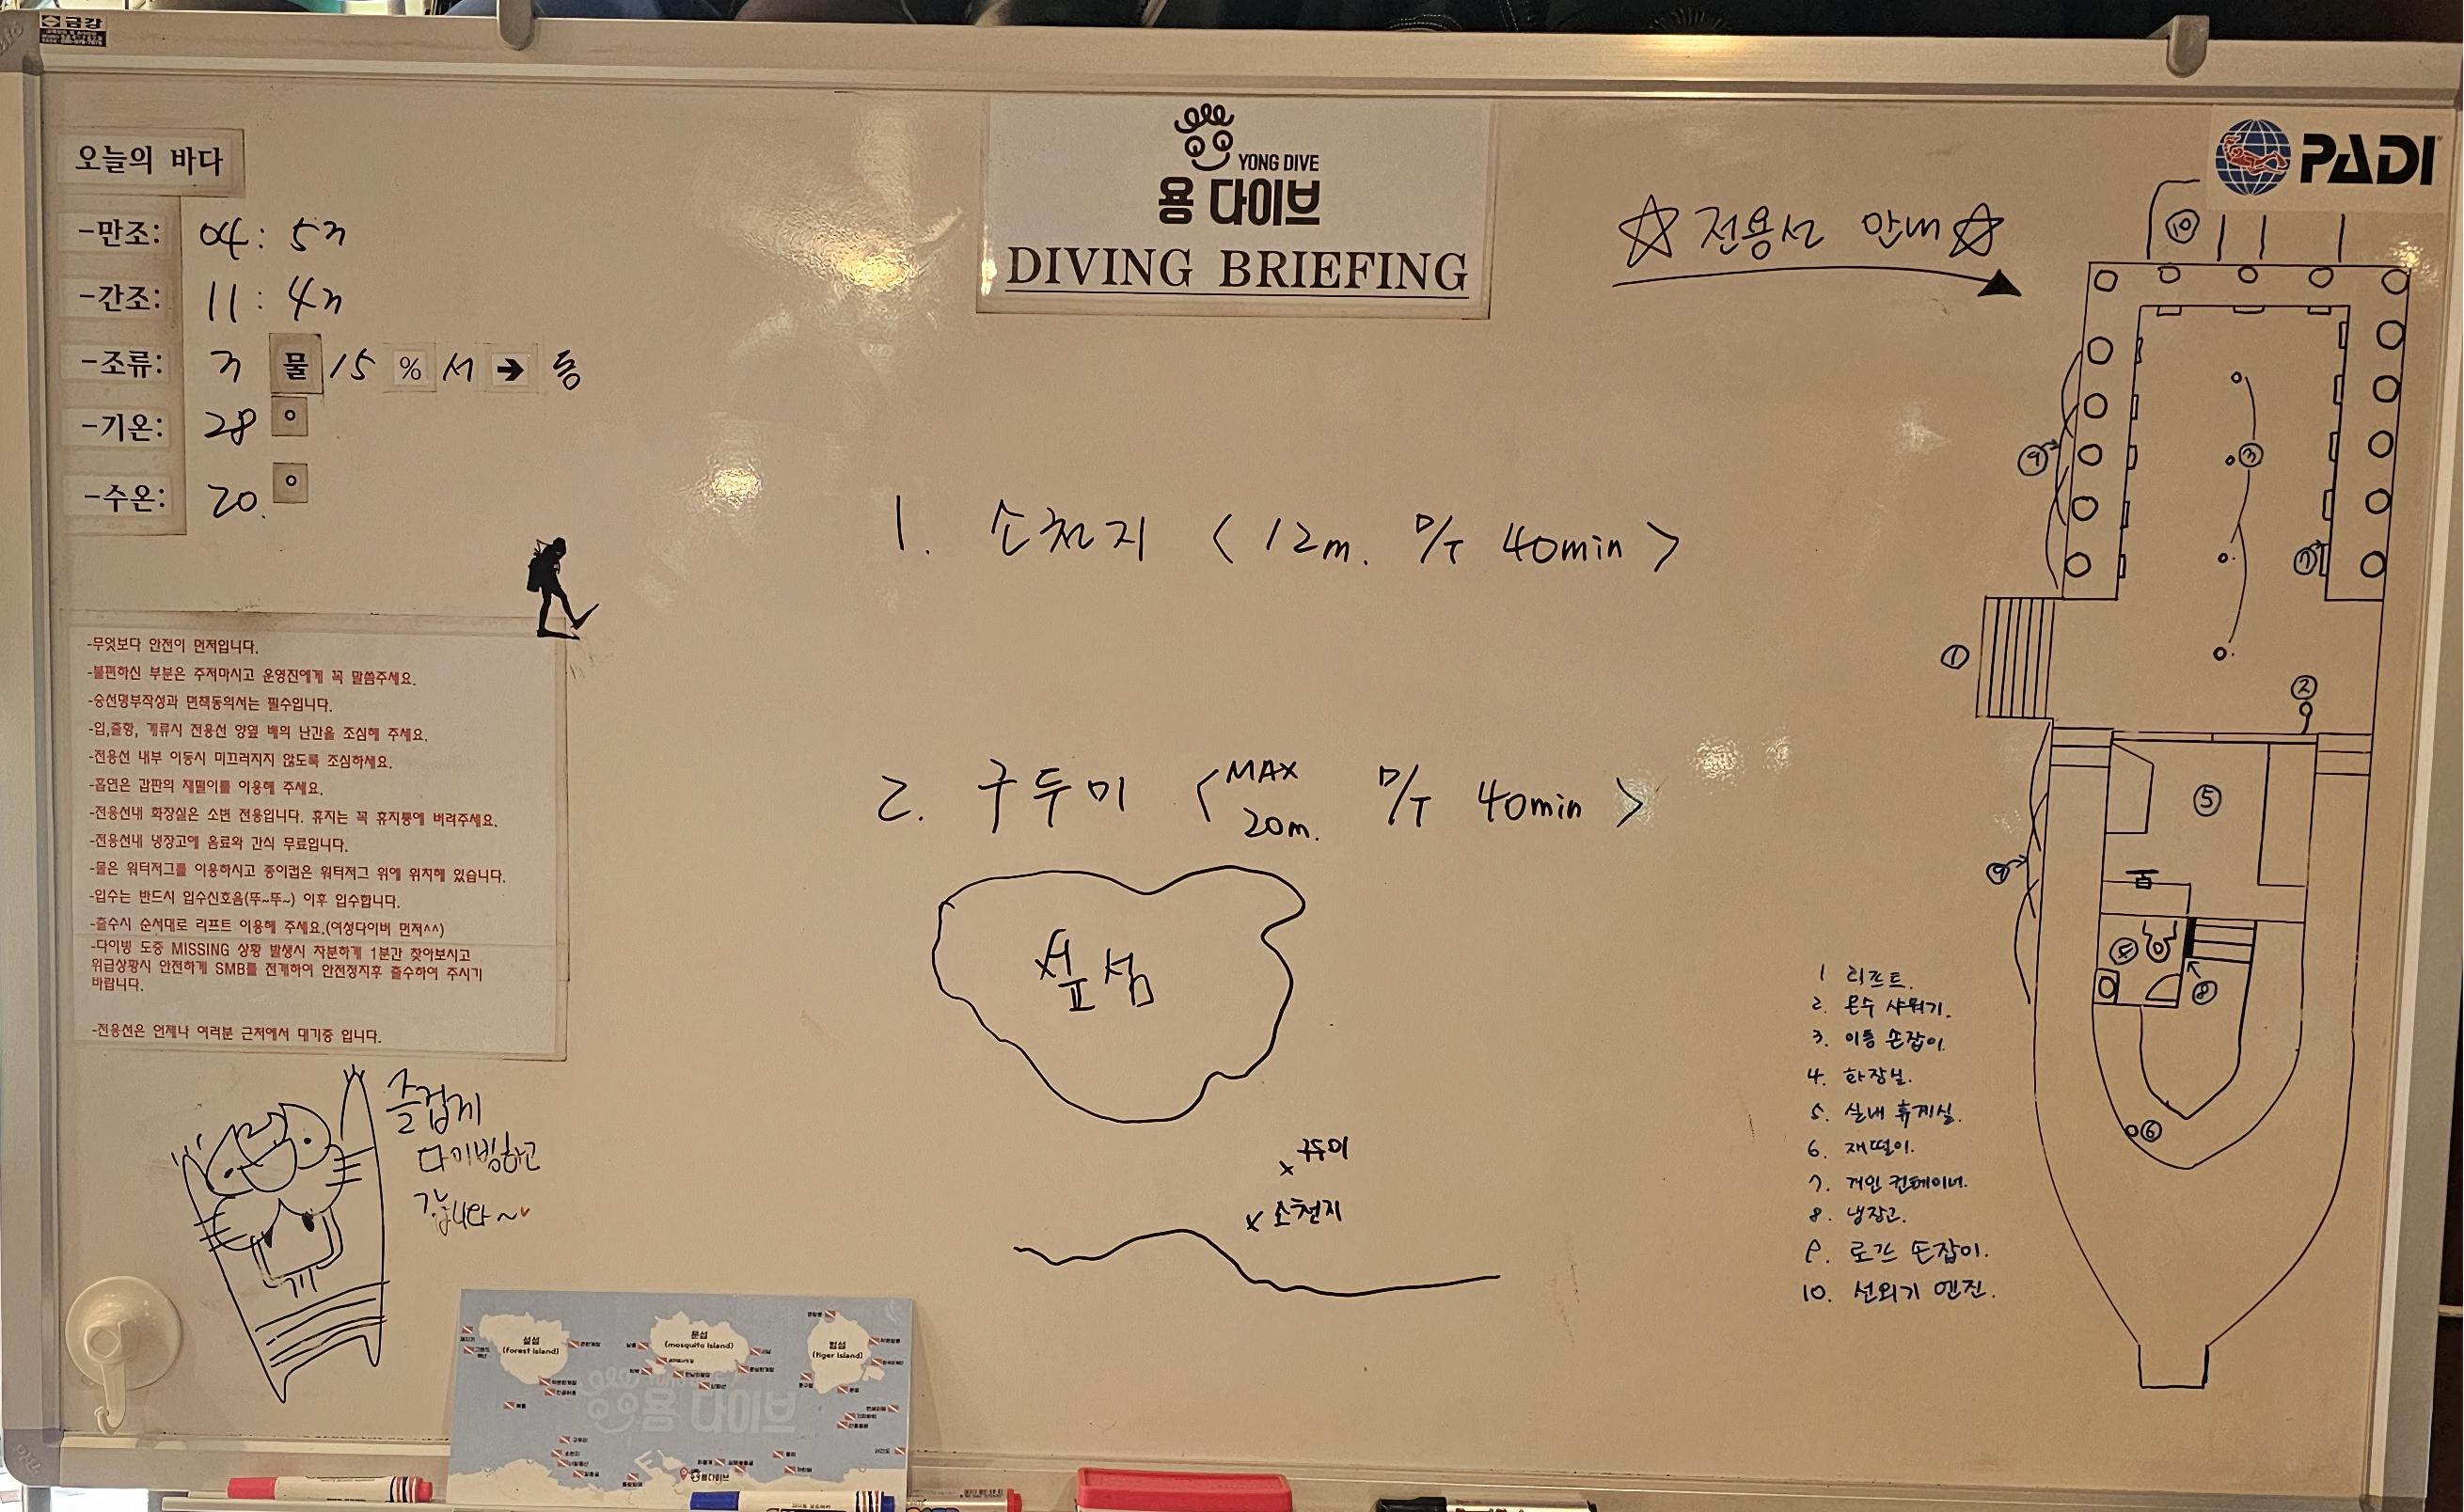 금강
오늘의 바다
-만조: 04 : 57
-간조: 11 : 47
-조류: 7 물 15 % 서 → 동
-기온: 28 °
-수온: 20. °
YONG DIVE
용 다이브
DIVING BRIEFING
☆ 전용선 안내 ☆
PADI
1. 소천지 < 12m. D/T 40min >
2. 구두미 < MAX 20m. D/T 40min >
섶섬
x 구두미
x 소천지
-무엇보다 안전이 먼저입니다.
-불편하신 부분은 주저마시고 운영진에게 꼭 말씀주세요.
-승선명부작성과 면책동의서는 필수입니다.
-입,출항, 계류시 전용선 양옆 배의 난간을 조심해 주세요.
-전용선 내부 이동시 미끄러지지 않도록 조심하세요.
-흡연은 갑판의 재떨이를 이용해 주세요.
-전용선내 화장실은 소변 전용입니다. 휴지는 꼭 휴지통에 버려주세요.
-전용선내 냉장고에 음료와 간식 무료입니다.
-물은 워터저그를 이용하시고 종이컵은 워터저그 위에 위치해 있습니다.
-입수는 반드시 입수신호음(뚜~뚜~) 이후 입수합니다.
-출수시 순서대로 리프트 이용해 주세요.(여성다이버 먼저^^)
-다이빙 도중 MISSING 상황 발생시 차분하게 1분간 찾아보시고
위급상황시 안전하게 SMB를 전개하여 안전정지후 출수하여 주시기
바랍니다.
-전용선은 언제나 여러분 근처에서 대기중 입니다.
즐겁게
다이빙하고
갑니다~
10
9
3
7
1
2
5
9
4
8
6
1 리프트.
2. 온수 샤워기.
3. 이동 손잡이.
4. 화장실.
5. 실내 휴게실.
6. 재떨이.
7. 개인 컨테이너.
8. 냉장고.
9. 로프 손잡이.
10. 선외기 엔진.
섶섬
(forest island)
문섬
(mosquito island)
범섬
(tiger island)
용 다이브
구두미
소천지
용다이브